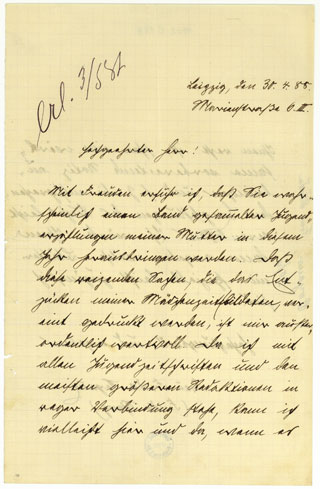 Erl. 3/5 86
Leipzig, den 30. 4. 85.
Marienstraße 6. III
Hochgeehrter Herr!
Mit Freuden erfuhr ich, daß Sie wahr-
scheinlich einen Band gesammelter Jugend-
erzählungen meiner Mutter in diesem
Jahr herausbringen werden. Daß
diese reizenden Sachen, die das Ent-
zücken meiner Mädchenzeit bildeten, ver-
eint gedruckt werden, ist mir außer-
ordentlich wertvoll. Da ich mit
allen Jugendzeitschriften und den
meisten größeren Redaktionen in
reger Verbindung stehe, kann ich
vielleicht hier und da, wenn es